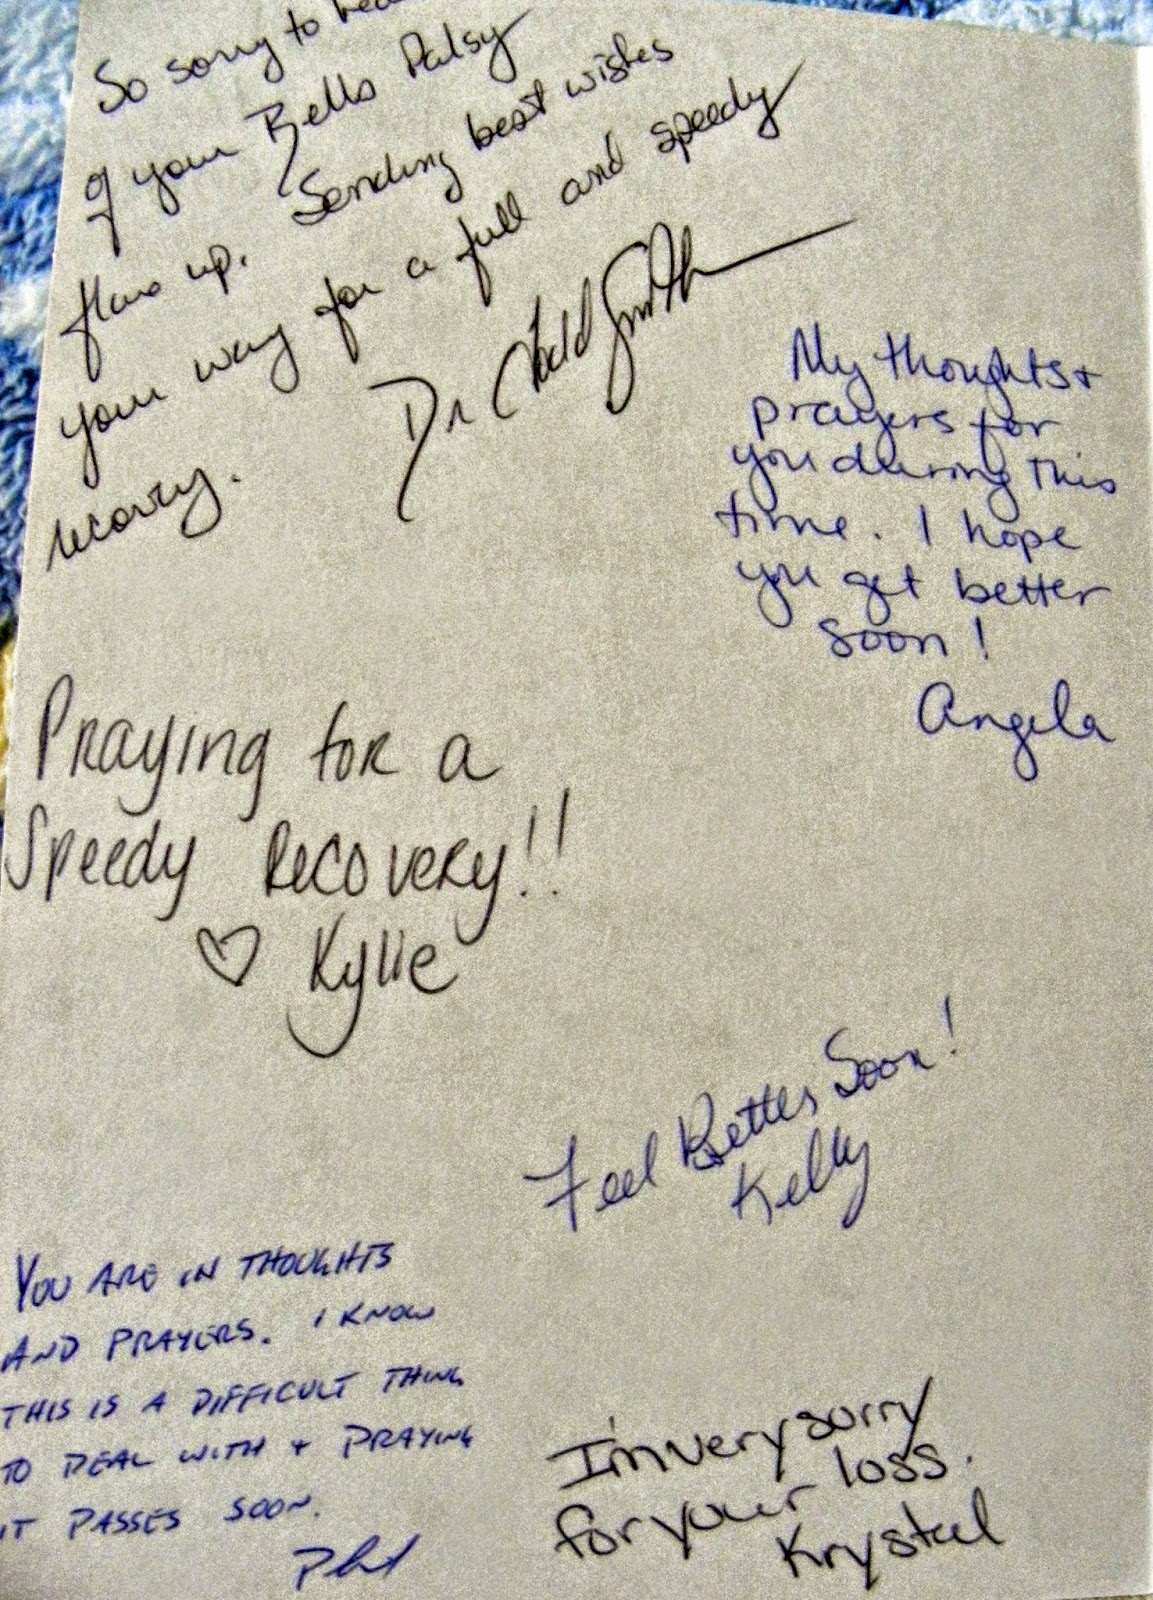 So sorry to
of your Bells Palsy
flare up. Sending best wishes
your way for a full and speedy
recovry.
Dr Todd Smith
My thoughts +
prayers for
you during this
time. I hope
you get better
soon!
Angela
Praying for a
Speedy Recovery!!
♡ Kylie
Feel Better Soon!
Kelly
YOU ARE IN THOUGHTS
AND PRAYERS. I KNOW
THIS IS A DIFFICULT THING
TO DEAL WITH + PRAYING
IT PASSES SOON.
I'm very sorry
for your loss.
Krystal